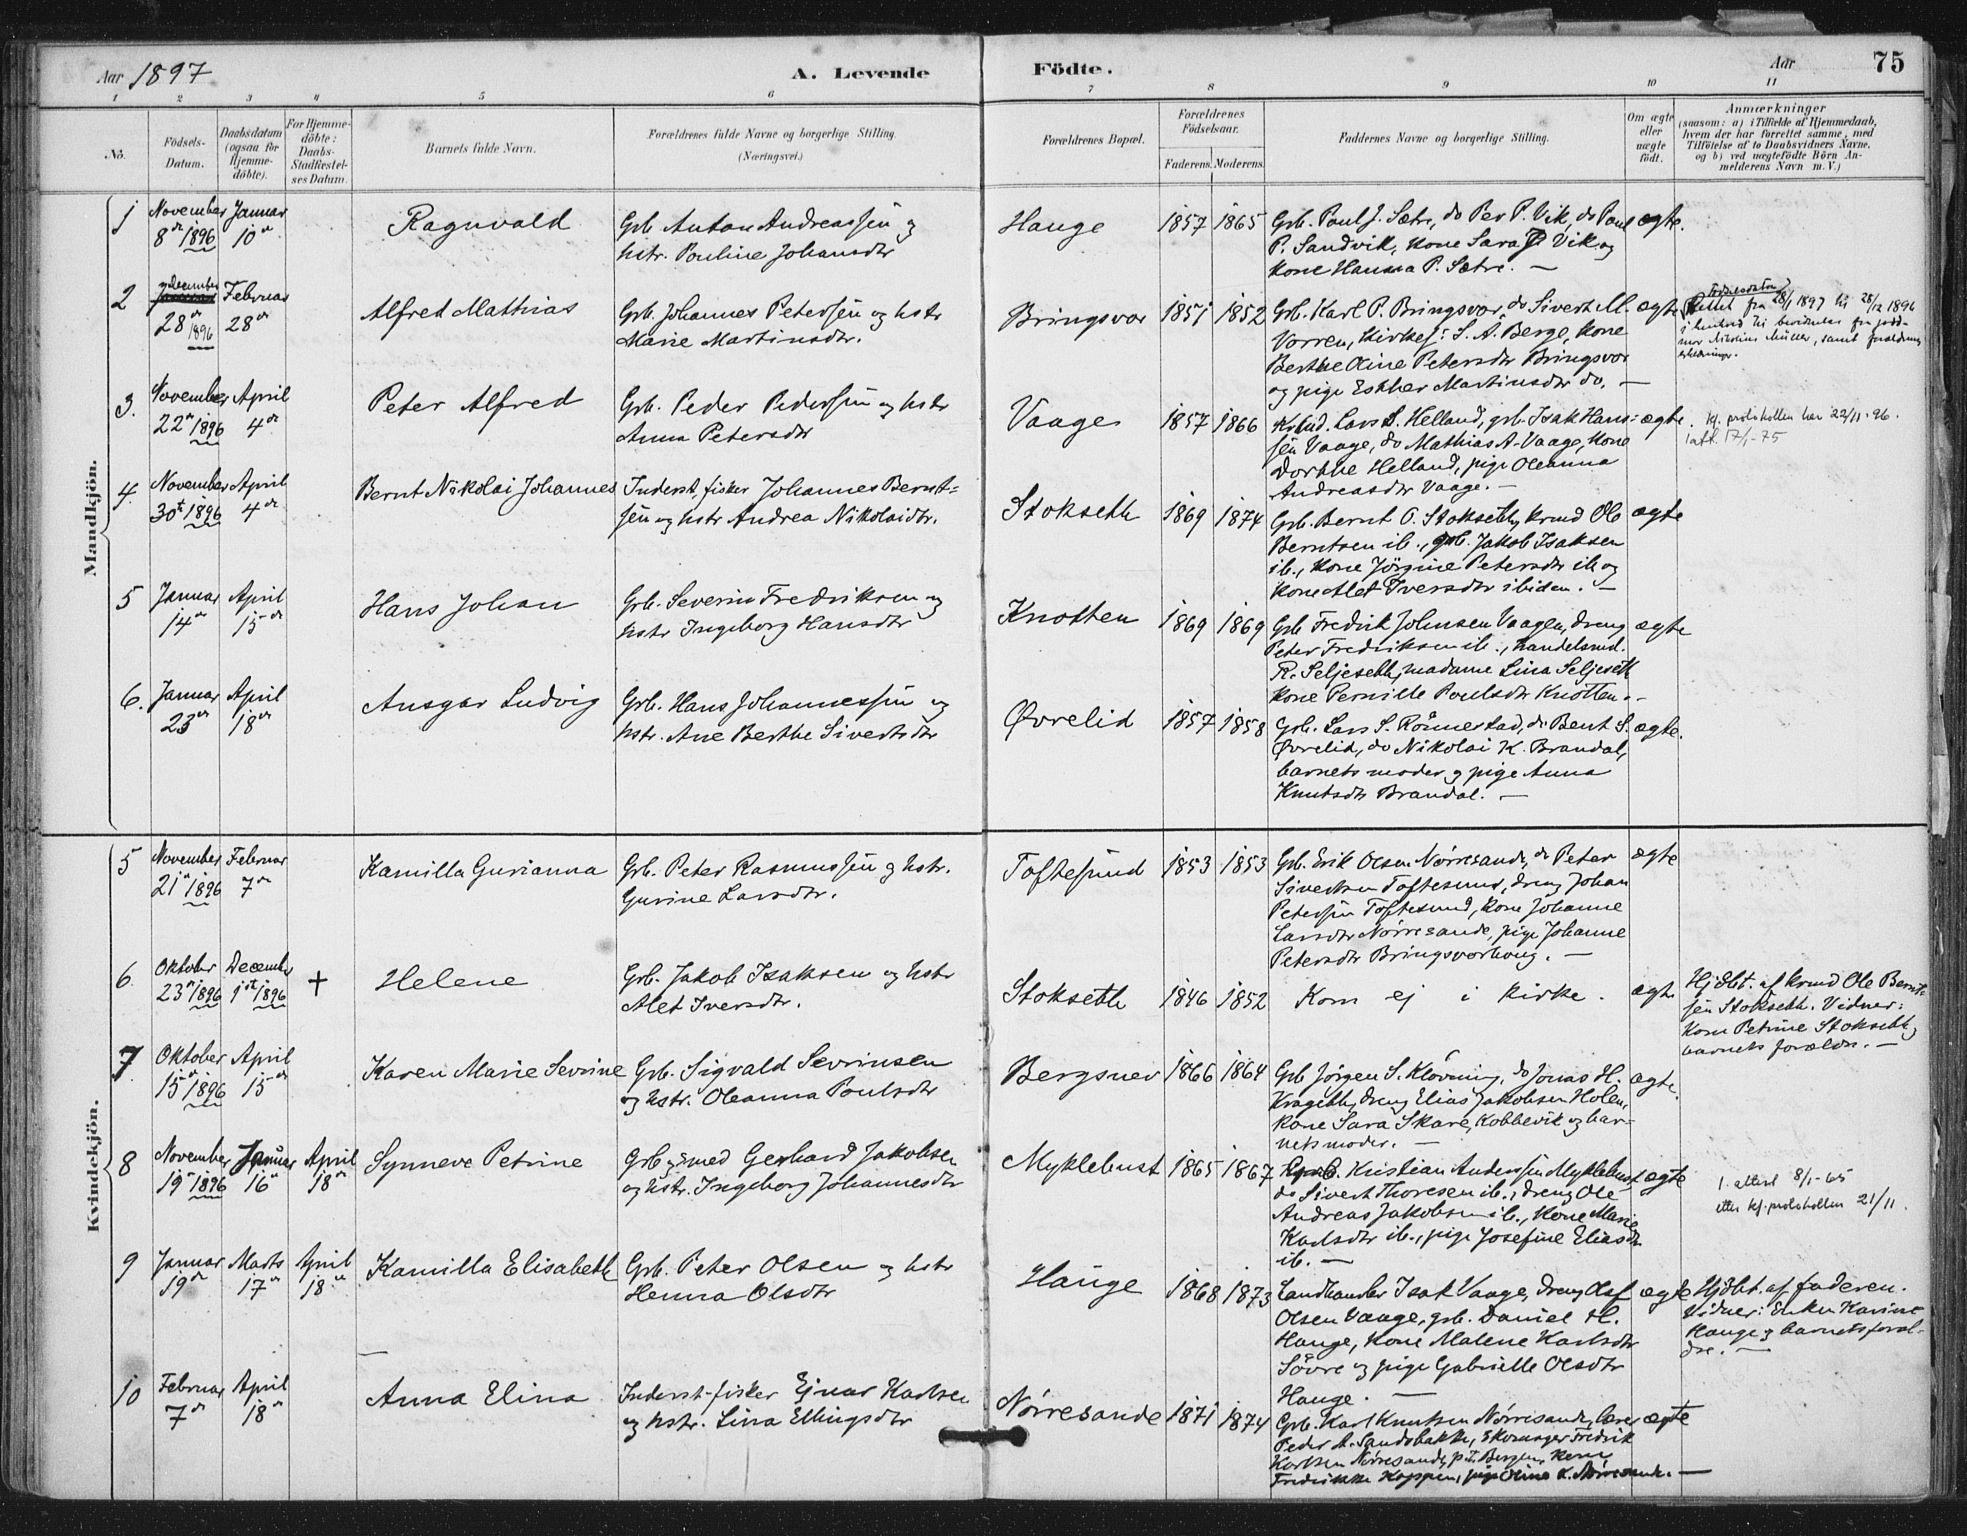 Aar 1897
A. Levende
Födte.
Aar
75
1 2 3 4 5 6 7 8 9 10 11
No.
Födsels-
Datum.
Daabsdatum
(ogsaa for
Hjemme-
döbte).
For Hjemme-
döbte:
Daabs-
Stadfæstel-
ses Datum.
Barnets fulde Navn.
Forældrenes fulde Navne og borgerlige Stilling.
(Næringsvei.)
Forældrenes Bopæl.
Forældrenes
Födselsaar.
Faderens. Moderens.
Faddernes Navne og borgerlige Stilling.
Om ægte
eller
uægte
födt.
Anmærkninger
(saasom: a) i Tilfælde af Hjemmedaab,
hvem der har forrettet samme, med
Tilföielse af to Daabsvidners Navne,
og b) ved uægtefödte Börn An-
melderens Navn m. V.)
Mandkjön.
1 November Januar Ragnvald Grb. Anton Andreassen og Hauge 1857 1865 Grb. Poul J. Sætre, do Per P. Vik, do Poul ægte.
8de 1896 10de hstr. Pouline Johansdtr P. Sandvik, kone Sara P. Vik og
kone Hanna P. Sætre. —
2 december Februar Alfred Mathias Grb. Johannes Petersen og hstr Bringsvor 1851 1852 Grb. Karl P. Bringsvor, do Sivert M. ægte Rettet fra 28/1 1897 til 28/12 1896
28de 1896 28de Marie Martinsdtr. Vorren, Kirkesj: S. A. Berge, kone
Berthe Oline Petersdtr Bringsvor
og pige Esther Martinsdtr do. —
3. November April Peter Alfred Grb. Peder Pedersen og hstr Vaage 1857 1866 Lars S. Helland, grb. Isak Han- ægte. kj. protokollen har 22/11-96.
22de 1896 4de Anna Petersdtr sen Vaage, do Mathias A. Vaage, kone 1 att. 17/1-75
Dorthe Helland, pige Oleanna
Andreasdtr Vaage. —
4. November April Bernt Nikolai Johannes Inderst, fisker Johannes Bernt- Stokseth 1869 1874 Grb. Bernt O. Stokseth, krmd Ole ægte
30te 1896 4de sen og hstr Andrea Nikolaidtr. Berntsen ib., grb. Jakob Isaksen
ib., kone Jørgine Petersdtr ib og
kone Alet Iversdtr ibiden. —
5 Januar April Hans Johan Grb. Severin Fredriksen og Knotten 1869 1869 Grb Fredrik Johnsen Vaagen, dreng ægte
14de 15de hstr Ingeborg Hansdtr Peter Fredriksen ib., handelsmd.
R. Seljeseth, madame Lina Seljeseth
kone Pernille Poulsdtr Knotten. —
6. Januar April Ansgar Ludvig Grb. Hans Johannessen og Øvrelid 1857 1858 Grb. Lars S. Rønnestad, do Bent S. ægte.
23de 18de hstr. Ane Berthe Sivertsdtr Øvrelid, do Nikolai K. Brandal,
barnets moder og pige Anna
Knutsdtr Brandal. —
Kvindekjön.
5 November Februar Kamilla Gurianna Grb. Peter Rasmussen og hstr. Toftesund 1853 1853 Grb. Erik Olsen Nørresande, do Peter ægte
21de 1896 7de Gurine Larsdtr. Sivertsen Toftesund, dreng Johan
Petersen Toftesund, kone Johanne
Larsdtr Nørresande, pige Johanne
Petersdtr Bringsvorhaug. —
6 Oktober December + Helene Grb. Jakob Isaksen og hstr Stokseth 1846 1852 Kom ej i kirke. ægte Hjdbt. af krmd Ole Bernt-
23de 1896 1ste 1896 Alet Iversdtr. sen Stokseth. Vidner:
Kone Petrine Stokseth og
barnets forældre. —
7 Oktober April Karen Marie Sevrine Grb. Sigvald Sevrinsen Bergsnev 1866 1864 Grb Jørgen S. Kløvning, do Jonas H. ægte.
15de 1896 15de og hstr. Oleanna Poulsdtr Krageth, dreng Elias Jakobsen Holen,
kone Sara Skare, Kobbevik og bar-
nets moder. —
8 November Januar April Synneve Petrine Grb og smed Gerhard Jakobsen Myklebust 1865 1867 Grb. Kristian Andersen Myklebust ægte
19de 1896 16de 18de og hstr. Ingeborg Johannesdtr do Sivert Thoresen ib., dreng Ole 1. attest 8/1-65
Andreas Jakobsen ib., kone Marie etter kj. protokollen 21/11.
Karlsdtr ib., pige Josefine Eliasdtr
ib. —
9 Januar Marts April Kamilla Elisabeth Grb. Peter Olsen og hstr Hauge 1868 1873 Landhandler Isak Vaage, dreng Olaf ægte Hjdbt. af faderen.
19de 17de 18de Henna Olsdtr Olsen Vaage, grb. Daniel H. Vidner: Enke Karine
Hauge, kone Malene Karlsdtr Hauge og barnets foræl-
Søvre og pige Gabrielle Olsdtr dre. —
Hauge. —
10 Februar April Anna Elina Inderst-fisker Ejnar Karlsen Nørresande 1871 1874 Grb. Karl Knutsen Nørresande, lærer ægte
7de 18de og hstr. Lina Ellingsdtr Peder A. Sandsbakk, skomager Fredrik
Karlsen Nørresande, p.t. Bergen, kone
Fredrikke Hoppen, pige Oline K. Nørresande. —